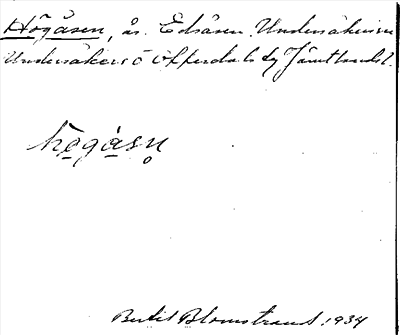 Högåsen, ås. Edsåsen. Undersåkers sn
Undersåkers o Offerdals tg Jämtlands l.
hǫgåsn̥
Bertil Blomstrand 1934